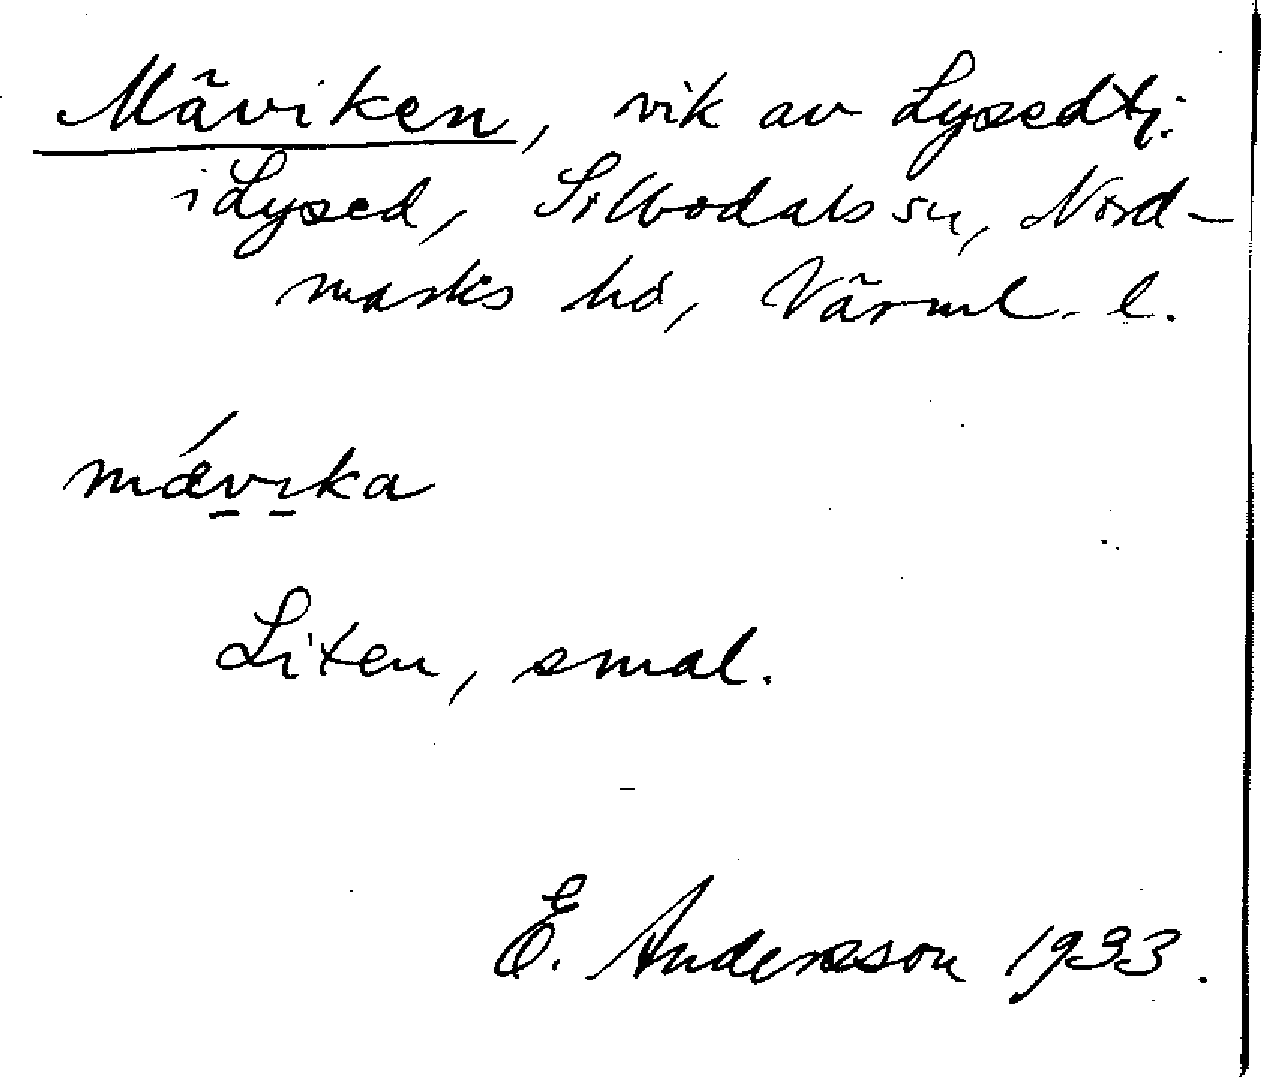 Mäviken, vik av Lysedtj.
i Lysed, Silbodals sn, Nord-
marks hd, Värml. l.
mǽvıka
Liten, smal.
E. Andersson 1933.